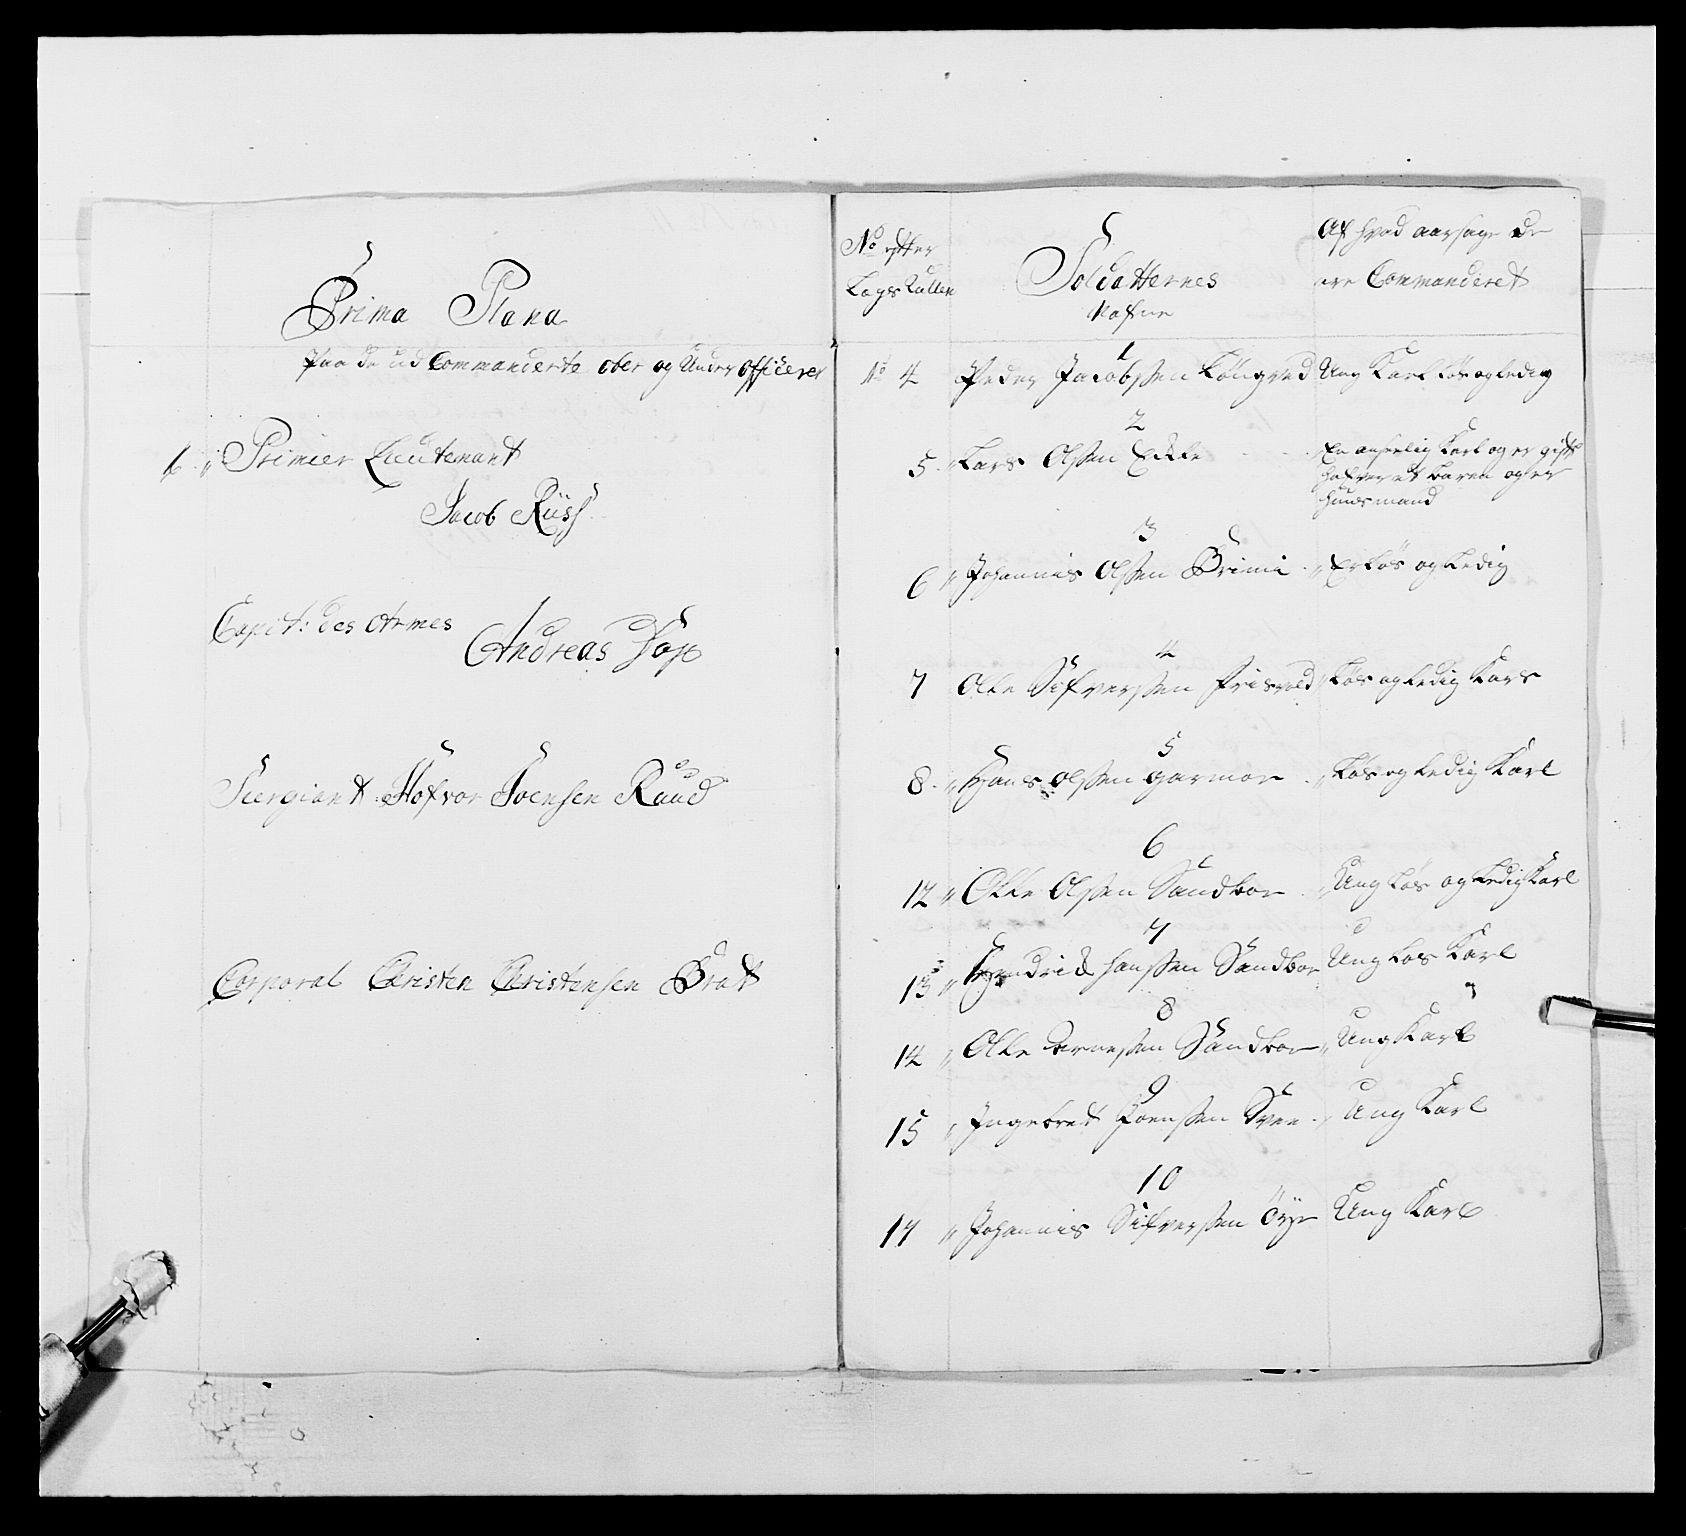 Prima Plana
Paa de ud Commanderte ober og Under officerer
1 „ Primier Lieutenant
Jacob Rüss
Capit: des Armes
Andreas Dop
Siergiant Hofvor Joensen Ruud
Corporal Christen Christensen Brat
No efter
Lags Rullen
Soldatternes
Nafne
Af hvad aarsage de
ere Commanderet
1
No 4 Peder Jacobssen Løngved Ung Karl løs og ledig
2
5 „ Lars Olssen Eikle En anseelig Karl og er gift
hafver et baren og er
huusmand
3
6 „ Johannis Olssen Brimi „ Er løs og ledig
4
7 Olle Sifverssen Frisvold „ løs og ledig Karl
5
8 „ Hans Olssen Garmoe „ løs og ledig Karl
6
12 „ Olle Olssen Sandboe „ Ung løs og ledig Karl
7
13 „ Hendrick Hanssen Sandboe Ung løs Karl
8
14 „ Olle Arnessen Sandboe „ Ung Karl
9
15 „ Ingebret Joenssen Svee „ Ung Karl
10
17 „ Johannis Sifverssen Øÿe Ung Karl